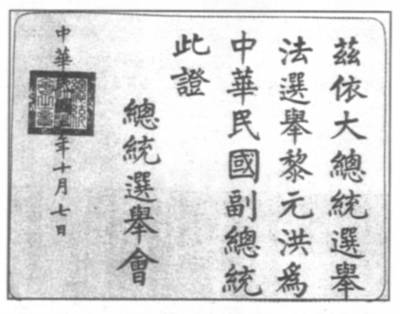 茲依大總統選舉
法選舉黎元洪爲
中華民國副總統
此證
總統選舉會
中華民國二年十月七日